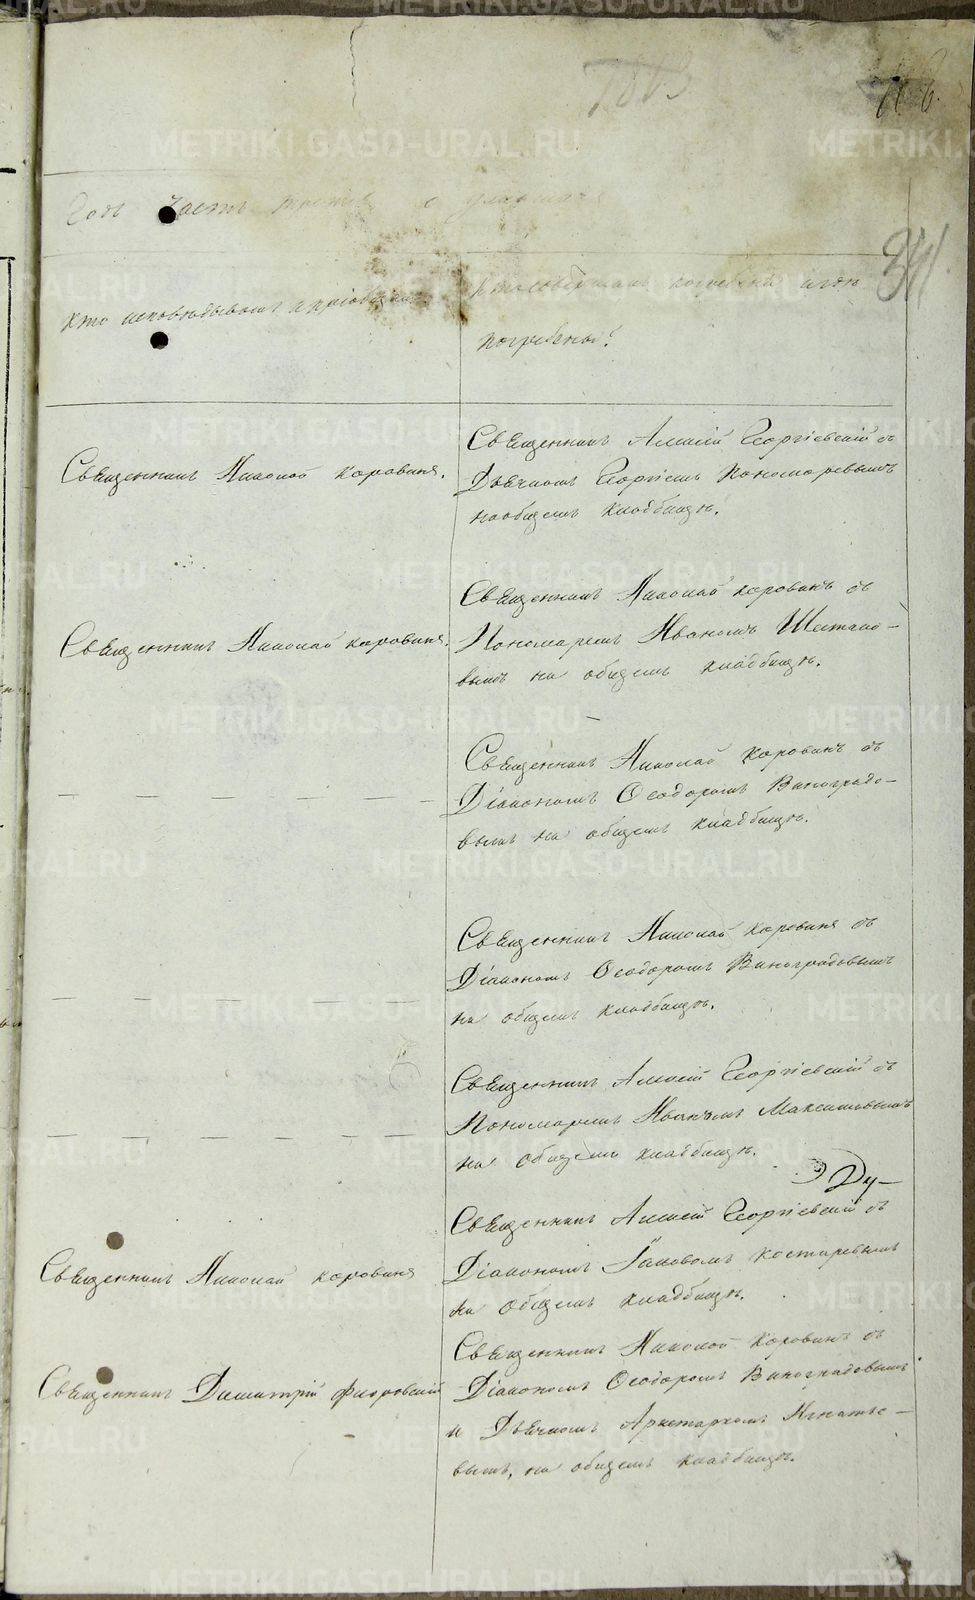 Годъ часть третія о умершихъ
Кто исповѣдывалъ и пріобщалъ
Кто совершалъ погребеніе и гдѣ
погребены?
Священникъ Николай Коровинъ.
Священникъ Алексій Георгіевскій съ
Дьячкомъ Георгіемъ Пономаревымъ
на общемъ кладбищѣ.
Священникъ Николай Коровинъ.
Священникъ Николай Коровинъ съ
Пономаремъ Иваномъ Шестако-
вымъ на общемъ кладбищѣ.
Священникъ Николай Коровинъ съ
Діакономъ Ѳеодоромъ Виноградо-
вымъ на общемъ кладбищѣ.
Священникъ Николай Коровинъ съ
Діакономъ Ѳеодоромъ Виноградовымъ
на общемъ кладбищѣ.
Священникъ Алексій Георгіевскій съ
Пономаремъ Иваномъ Максимовымъ
на общемъ кладбищѣ.
Ду-
Священникъ Николай Коровинъ
Священникъ Алексій Георгіевскій съ
Діакономъ Іаковомъ Костаревымъ
на общемъ кладбищѣ.
Священникъ Димитрій Флоровскій
Священникъ Николай Коровинъ съ
Діакономъ Ѳеодоромъ Виноградовымъ
и Дьячкомъ Аристархомъ Игнатье-
вымъ, на общемъ кладбищѣ.
METRIKI.GASO-URAL.RU